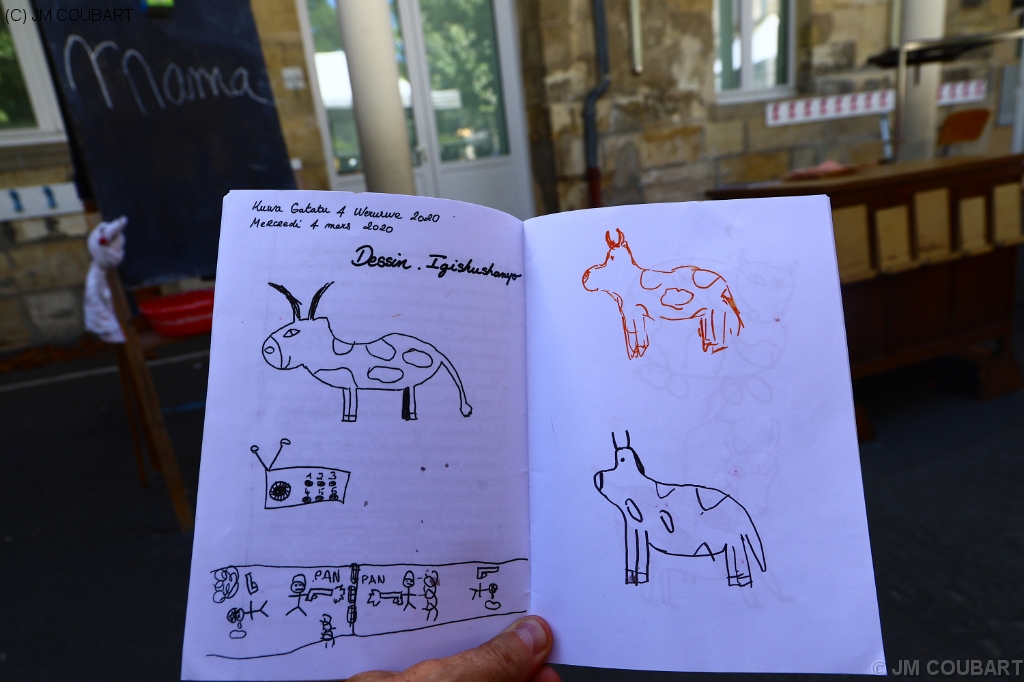 (C) JM COUBART
Mama
Kuwa Gatatu 4 Werurwe 2020
Mercredi 4 mars 2020
Dessin. Igishushanyo
1 2 3
4 5 6
PAN PAN
© JM COUBART